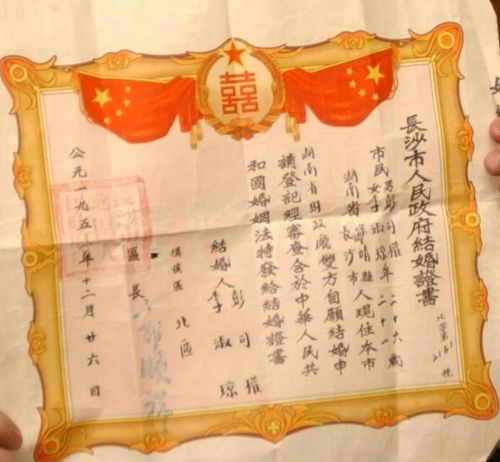 囍
長沙市人民政府結婚證書
北字第
號
市民男彭司權年二十六歲
女李淑瓊二十一
湖南省靖縣人現住本市
長沙市
湖南省財政廳雙方自願結婚申
請登記經審查合於中華人民共
和國婚姻法特發給結婚證書
結婚人彭司權
李淑瓊
填發區北區
區長
公元一九五年十二月廿六日